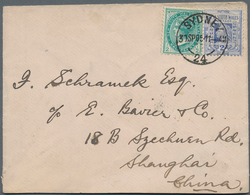 SYDNEY
24
J. Schramek Esq.
c/o E. Bavier & Co.
18 B Szechuen Rd.
Shanghai
China